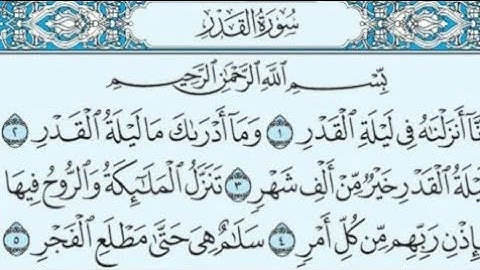 سُورَةُ الْقَدْرِ
بِسْمِ اللَّهِ الرَّحْمَٰنِ الرَّحِيمِ
نَّا أَنزَلْنَاهُ فِي لَيْلَةِ الْقَدْرِ ١ وَمَا أَدْرَاكَ مَا لَيْلَةُ الْقَدْرِ ٢
يْلَةُ الْقَدْرِ خَيْرٌ مِّنْ أَلْفِ شَهْرٍ ٣ تَنَزَّلُ الْمَلَائِكَةُ وَالرُّوحُ فِيهَا
بِإِذْنِ رَبِّهِم مِّن كُلِّ أَمْرٍ ٤ سَلَامٌ هِيَ حَتَّىٰ مَطْلَعِ الْفَجْرِ ٥